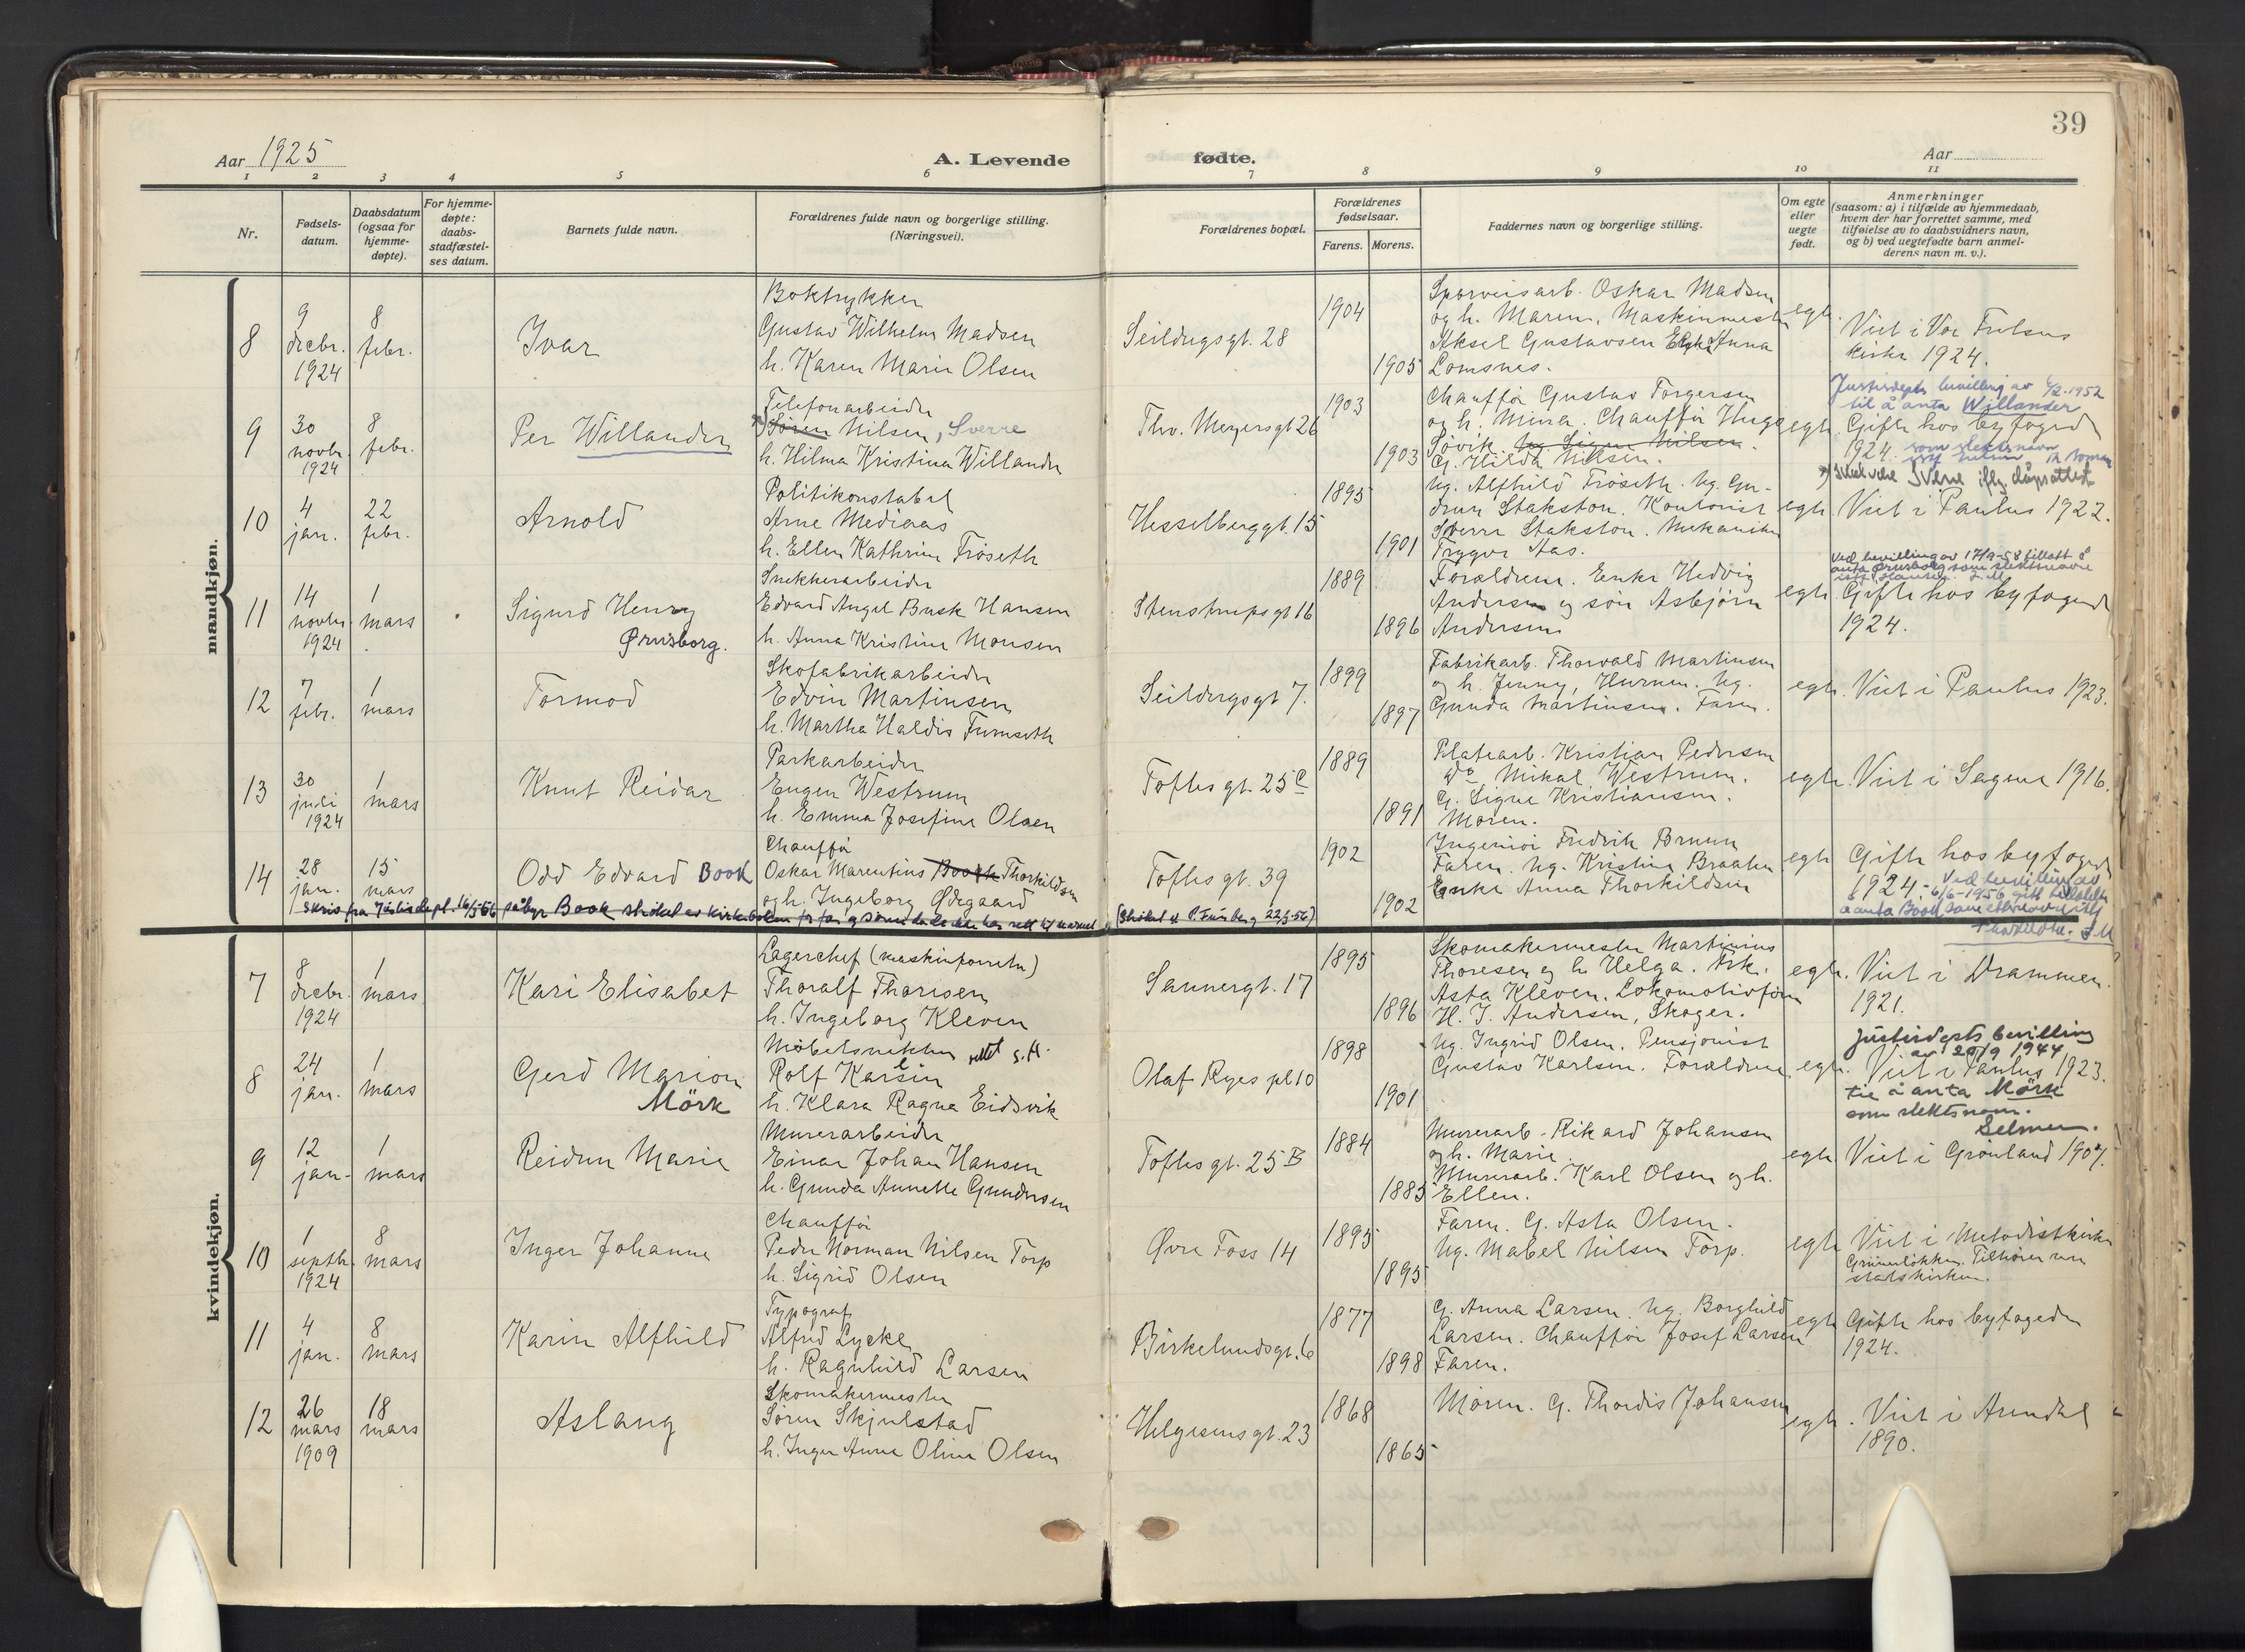 39
Aar 1925
A. Levende
fødte.
Aar
1 2 3 4 5 6 7 8 9 10 11
Nr.
Fødsels-
datum.
Daabsdatum
(ogsaa for
hjemme-
døpte).
For hjemme-
døpte:
daabs-
stadfæstel-
ses datum.
Barnets fulde navn.
Forældrenes fulde navn og borgerlige stilling.
(Næringsvei).
Forældrenes bopæl.
Forældrenes
fødselsaar.
Farens. Morens.
Faddernes navn og borgerlige stilling.
Om egte
eller
uegte
født.
Anmerkninger
(saasom: a) i tilfælde av hjemmedaab,
hvem der har forrettet samme, med
tilføielse av to daabsvidners navn,
og b) ved uegtefødte barn anmel-
derens navn m. v.).
mandkjøn.
8
9
decbr.
1924
8
febr.
Ivar
Boktrykker
Gustav Wilhelm Madsen
h. Karen Marie Olsen
Seildugsgt. 28
1904
1905
Sporveisarb. Oskar Madsen
og h. Maren, Maskinmester
Aksel Gustavsen Anna
Lomsnes.
egte.
Viet i Vor Frelsers
kirke 1924.
9
30
novbr.
1924
8
febr.
Per Willander
Telefonarbeider
Søren Nilsen, Sverre
h. Hilma Kristina Willander
Thv. Meyersgt 26
1903
1903
Chauffør Gustav Torgersen
og h. Mina. Chauffør Hugo
Søvik. Ug. Signe Nilsen.
G. Hilda Nilsen.
egte.
Justisdepts bevilling av 6/2-1952
til å anta Willander
Gift hos byfoged
1924. som slektsnavn
istf Nilsen
x) skal være Sverre iflg. dåpsattest
10
4
jan.
22
febr.
Arnold
Politikonstabel
Arne Mediaas
h. Ellen Kathrine Frøseth
Hesselberggt. 15
1895
1901
Ug. Alfhild Frøseth. Ug. Gu-
drun Stakston. Kontorist
Sverre Stakston. Mekaniker
Trygve Aas.
egte.
Viet i Paulus 1922.
11
14
novbr.
1924
1
mars
Sigurd Henry
Ørnsborg.
Snekkerarbeider
Edvard Angel Busk Hansen
h. Anna Kristine Monsen
Stenstrupsgt 16
1889
1896
Forældrene. Enke Hedvig
Andersen og søn Asbjørn
Andersen
egte.
Ved bevilling av 17/9-58 tillatt å
anta Ørnsborg som slektsnavn
istf. Hansen.
Gift hos byfoged
1924.
12
7
febr.
1
mars
Tormod
Skofabrikarbeider
Edvin Martinsen
h. Martha Haldis Furuseth
Seildugsgt 7.
1899
1897
Fabrikarb. Thorvald Martinsen
og h. Jenny, Hurum. Ug.
Gunda Martinsen. Faren.
egte.
Viet i Paulus 1923.
13
30
juli
1924
1
mars
Knut Reidar
Parkarbeider
Eugen Westrum
h. Emma Josefine Olsen
Toftes gt. 25 C
1889
1891
Platearb. Kristian Pedersen
Do Mikal Westrum.
G. Signe Kristiansen.
Moren.
egte.
Viet i Sagene 1916.
14
28
jan.
15
mars
Odd Edvard Book
Chauffør
Oskar Marentius Book Thorkildsen
og h. Ingeborg Ødegaard
Toftes gt. 39
1902
1902
Ingeniør Fredrik Bruun
Faren. Ug. Kristine Braaten
Enke Anna Thorkildsen
egte
Gift hos byfoged
1924. Ved bevilling av
6/6-1956 gitt tillatelse
å anta Book som etternavn istf
Thorkildsen. S.M
Skriv fra Justisdept. 16/5-56 påbyr Book strøket av kirkeboken for far og sønn da de ikke har rett til navnet
(Strøket v P. Furuberg 22/5-56)
kvindekjøn.
7
8
decbr.
1924
1
mars
Kari Elisabet
Lagerchef (maskinforretn)
Thoralf Thoresen
h. Ingeborg Kleven
Sannergt. 17
1895
1896
Skomakermester Martinius
Thoresen og h. Helga. Frk.
Asta Kleven. Lokomotivfører
H. J. Andersen, Skoger.
egte.
Viet i Drammen.
1921.
8
24
jan.
1
mars
Gerd Marion
Mörk
Møbelsnekker rettet S.H.
Rolf Karlsen
h. Klara Ragna Eidsvik
Olaf Ryes pl 10
1898
1901
Ug. Ingrid Olsen. Pensjonist
Gustav Karlsen. Forældrene.
egte.
Justisdepts bevilling
av 20/9 1944
Viet i Paulus 1923.
til å anta Mörk
som slektsnavn.
Selmer.
9
12
jan.
1
mars
Reidun Marie
Murerarbeider
Einar Johan Hansen
h. Gunda Annette Gundersen
Toftes gt. 25 B
1884
1885
Murerarb. Rikard Johansen
og h. Marie.
Murerarb. Karl Olsen og h.
Ellen.
egte.
Viet i Grønland 1907.
10
1
septbr.
1924
8
mars
Inger Johanne
Chauffør
Peder Norman Nilsen Torp
h. Sigrid Olsen
Øvre Foss 14
1895
1895
Faren. G. Asta Olsen.
Ug. Mabel Nilsen Torp.
egte
Viet i Metodistkirken
Grünerløkken. Tilhører nu
statskirken.
11
4
jan.
8
mars
Karin Alfhild
Typograf
Alfred Lycke
h. Ragnhild Larsen
Birkelundsgt. 6
1877
1898
G. Anna Larsen. Ug. Borghild
Larsen. Chauffør Josef Larsen
Faren.
egte
Gift hos byfogeden
1924.
12
26
mars
1909
18
mars
Aslaug
Skomakermester
Søren Skjulstad
h. Inger Anne Oline Olsen
Helgesensgt. 23
1868
1865
Moren. G. Thordis Johansen
egte.
Viet i Arendal
1890.